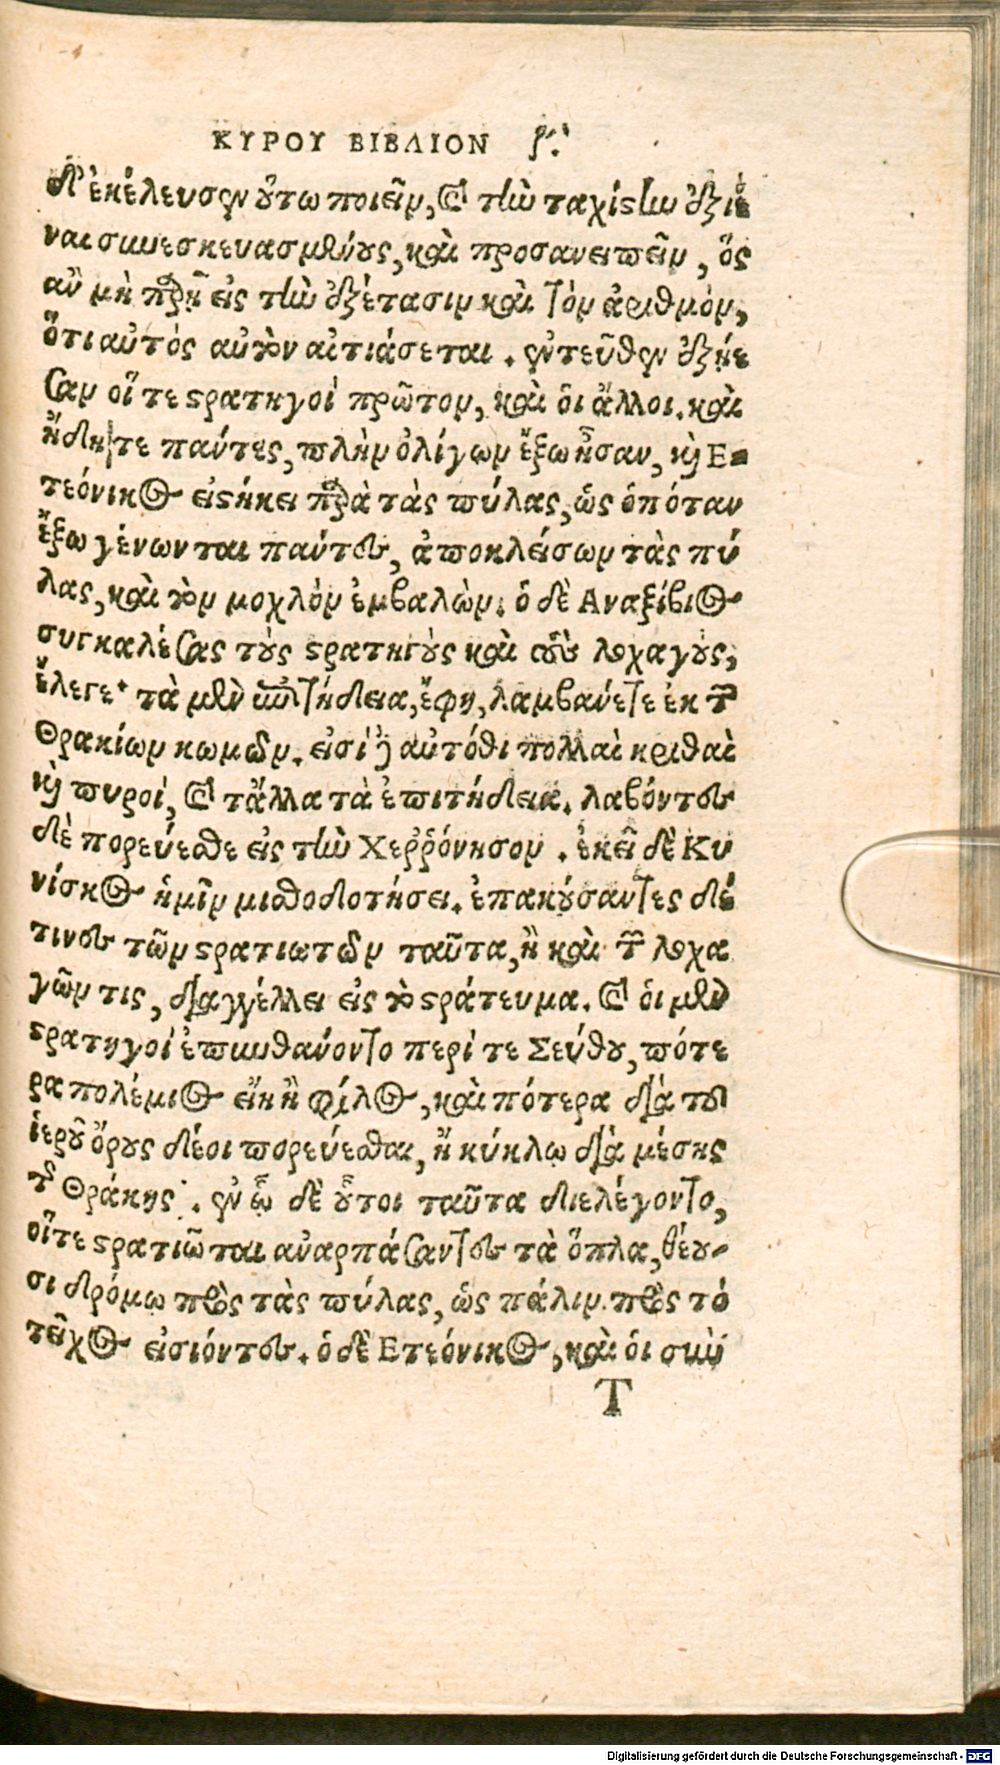 ΚΥΡΟΥ ΒΙΒΛΙΟΝ ζ΄.
δ' ἐκέλευσεν οὕτω ποιεῖν, καὶ τὴν ταχίστην ἐξιέ
ναι συνεσκευασμένους, καὶ προσανειπεῖν, ὃς
ἂν μὴ παρῇ εἰς τὴν ἐξέτασιν καὶ τὸν ἀριθμὸν,
ὅτι αὐτὸς αὑτὸν αἰτιάσεται. ἐντεῦθεν ἐξῄε
σαν οἵ τε στρατηγοὶ πρῶτον, καὶ οἱ ἄλλοι. καὶ
ἤδη τε πάντες, πλὴν ὀλίγων ἔξω ἦσαν, καὶ Ε-
τεόνικος εἱστήκει παρὰ τὰς πύλας, ὡς ὁπόταν
ἔξω γένωνται πάντες, ἀποκλείσων τὰς πύ
λας, καὶ τὸν μοχλὸν ἐμβαλὼν. ὁ δὲ Αναξίβιος
συγκαλέσας τοὺς στρατηγοὺς καὶ τοὺς λοχαγοὺς,
ἔλεγε· τὰ μὲν ἐπιτήδεια, ἔφη, λαμβάνετε ἐκ τῶν
Θρακίων κωμῶν. εἰσὶ δὲ αὐτόθι πολλαὶ κριθαὶ
καὶ πυροί, καὶ τἄλλα τὰ ἐπιτήδεια. λαβόντες
δὲ πορεύεσθε εἰς τὴν Χεῤῥόνησον. ἐκεῖ δὲ Κυ
νίσκος ἡμῖν μισθοδοτήσει. ἐπακούσαντες δέ
τινες τῶν στρατιωτῶν ταῦτα, ἢ καὶ τῶν λοχα
γῶν τις, διαγγέλλει εἰς τὸ στράτευμα. καὶ οἱ μὲν
στρατηγοὶ ἐπυνθάνοντο περί τε Σεύθου, πότε
ρα πολέμιος εἴη ἢ φίλος, καὶ πότερα διὰ τοῦ
ἱεροῦ ὄρους δέοι πορεύεσθαι, ἢ κύκλῳ διὰ μέσης
τῆς Θρᾴκης. ἐν ᾧ δὲ οὗτοι ταῦτα διελέγοντο,
οἵτε στρατιῶται ἀναρπάσαντες τὰ ὅπλα, θέου-
σι δρόμῳ πρὸς τὰς πύλας, ὡς πάλιν πρὸς τὸ
τεῖχος εἰσιόντες. ὁ δὲ Ετεόνικος, καὶ οἱ σὺν
T
Digitalisierung gefördert durch die Deutsche Forschungsgemeinschaft - DFG